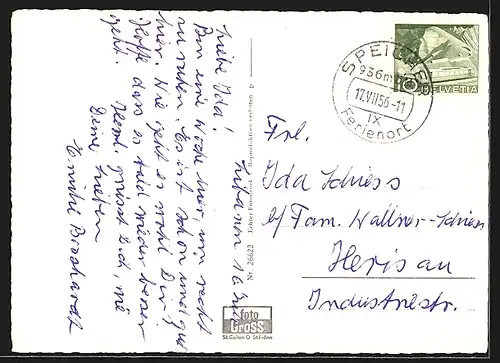 Liebe Ida!
Bin eine Woche hier um recht
zu ruhen. Es ist schön und gut
hier. Wie geht es wohl Dir?
Hoffe dass es bald wieder besser
geht.
Herzl. grüsst Dich, wie
Deine lieben
Emmi Bosshardt
Echter Fotodruck - Reproduktion verboten
Nr. 26622
foto
GROSS
St. Gallen O St. Fiden
SPEICHER
936m
17.VII.56-11
IX
Ferienort
10
HELVETIA
Frl.
Ida Schiess
b/ Fam. Wallner-Schiess
Herisau
Industriestr.